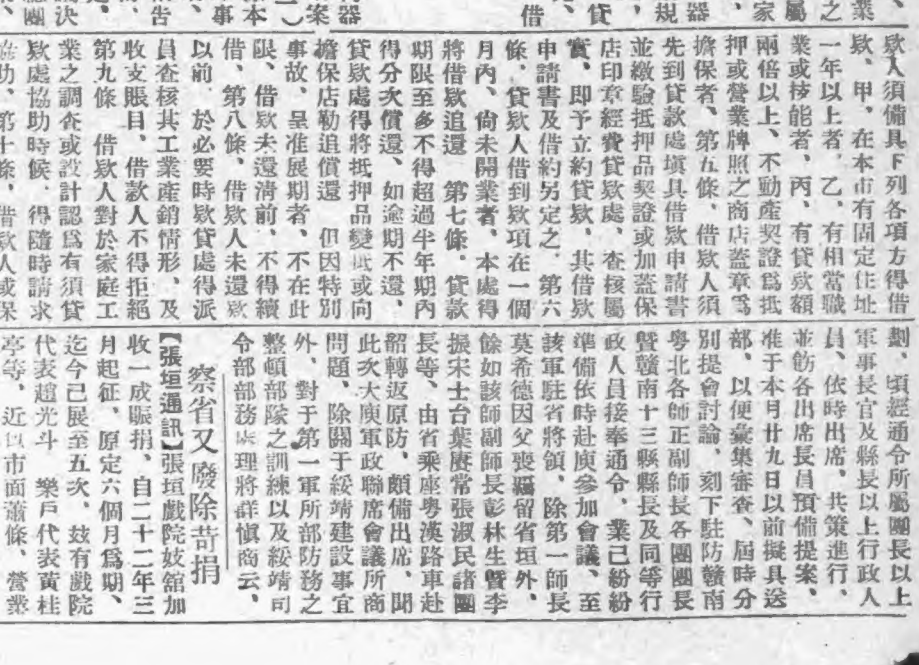 業
之
屬
家
器
規
貸
借
款人須備具下列各項方得借
款、甲、在本市有固定住址
一年以上者、乙、有相當職
業或技能者、丙、有貸款額
兩倍以上、不動產契證爲抵
押或營業牌照之商店蓋章爲
擔保者、第五條、借款人須
先到貸款處塡具借款申請書
並繳驗抵押品契證或加蓋保
店印章經費貸款處、查核屬
實、即予立約貸款、其借款
申請書及借約另定之、第六
條、貸款人借到款項在一個
月內、尙未開業者、本處得
將借款追還、第七條、貸款
期限至多不得超過半年期內
得分次償還、如逾期不還、
貸款處得將抵押品變抵或向
擔保店勒追償還、但因特別
事故、呈准展期者、不在此
限、借款未還清前、不得續
借、第八條、借款人未還款
以前、於必要時款貸處得派
員查核其工業產銷情形、及
收支賬目、借款人不得拒絕
第九條、借款人對於家庭工
業之調查或設計認爲有須貸
款處協助時候、得隨時請求
協助、第十條、借款人或保
劃、頃經通令所屬團長以上
軍事長官及縣長以上行政人
員、依時出席、共策進行、
並飭各出席長員預備提案、
准于本月廿九日以前擬具送
部、以便彙集審查、屆時分
別提會討論、刻下駐防贛南
粵北各師正副師長各團團長
曁贛南十三縣縣長及同等行
政人員接奉通令、業已紛紛
準備依時赴庾參加會議、至
該軍駐省將領、除第一師長
莫希德因父喪羈留省垣外、
餘如該師副師長彭林生曁李
振宋士台葉賡常張淑民諸團
長等、由省乘座粵漢路車赴
韶轉返原防、頗備出席、聞
此次大庾軍政聯席會議所商
問題、除關于綏靖建設事宜
外、對于第一軍所部防務之
整頓部隊之訓練以及綏靖司
令部部務理將詳愼商云、
察省又廢除苛捐
【張垣通訊】張垣戲院妓舘加
收一成賑捐、自二十二年三
月起征、原定六個月爲期、
迄今已展至五次、玆有戲院
代表趙光斗 樂戶代表黃桂
亭等、近以市面蕭條、營業